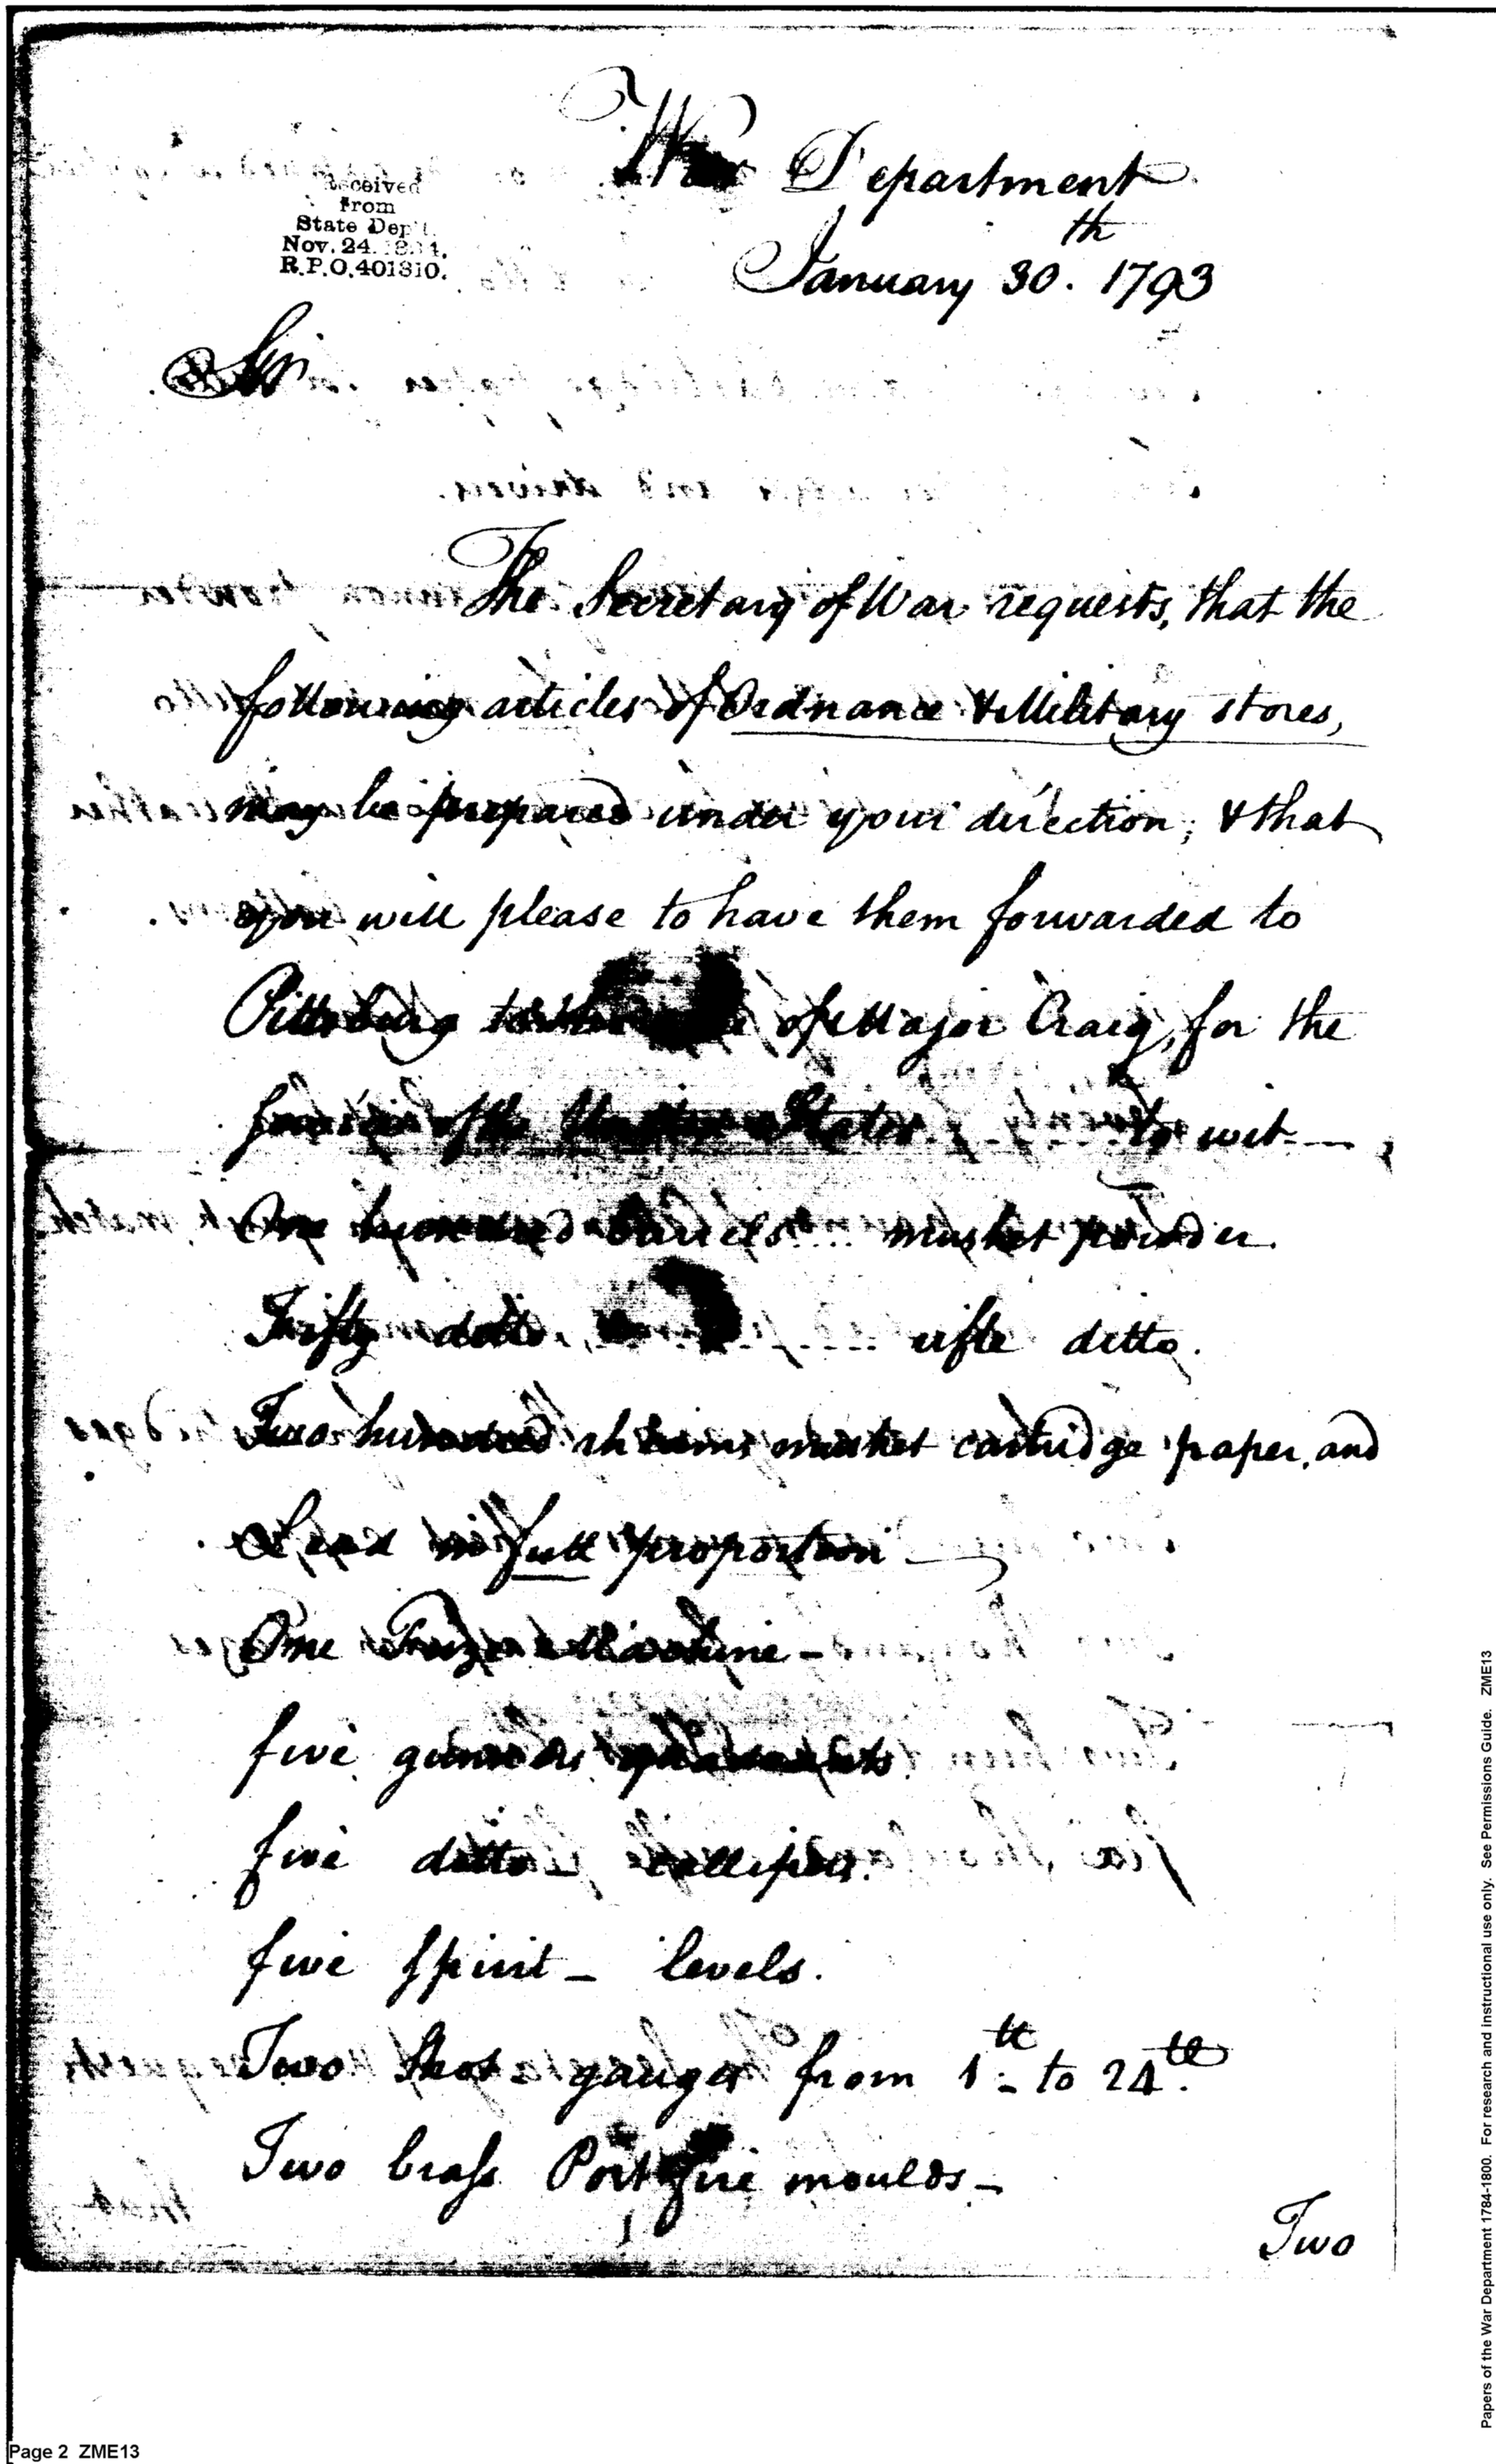 War Department
January 30.th 1793
Received
from
State Dep't.
Nov. 24.
R.P.O. 401310.
Sir
The Secretary of War requests, that the
following articles of Ordnance & Military stores,
may be prepared under your direction; & that
you will please to have them forwarded to
Pittsburg to the of Major Craig, for the
of the United States to wit —
One hundred barrels .... musket powder.
Fifty ditto ifle ditto.
Two hundred rheams musket cartridge paper, and
Lead in full proportion —
One Machine —
five gunners quadrants
five ditto callipers.
five spirit - levels.
Two Shot - gauges from 1 to 24
Two brass Portfire moulds -
Two
Page 2 ZME13
Papers of the War Department 1784-1800. For research and instructional use only. See Permissions Guide. ZME13